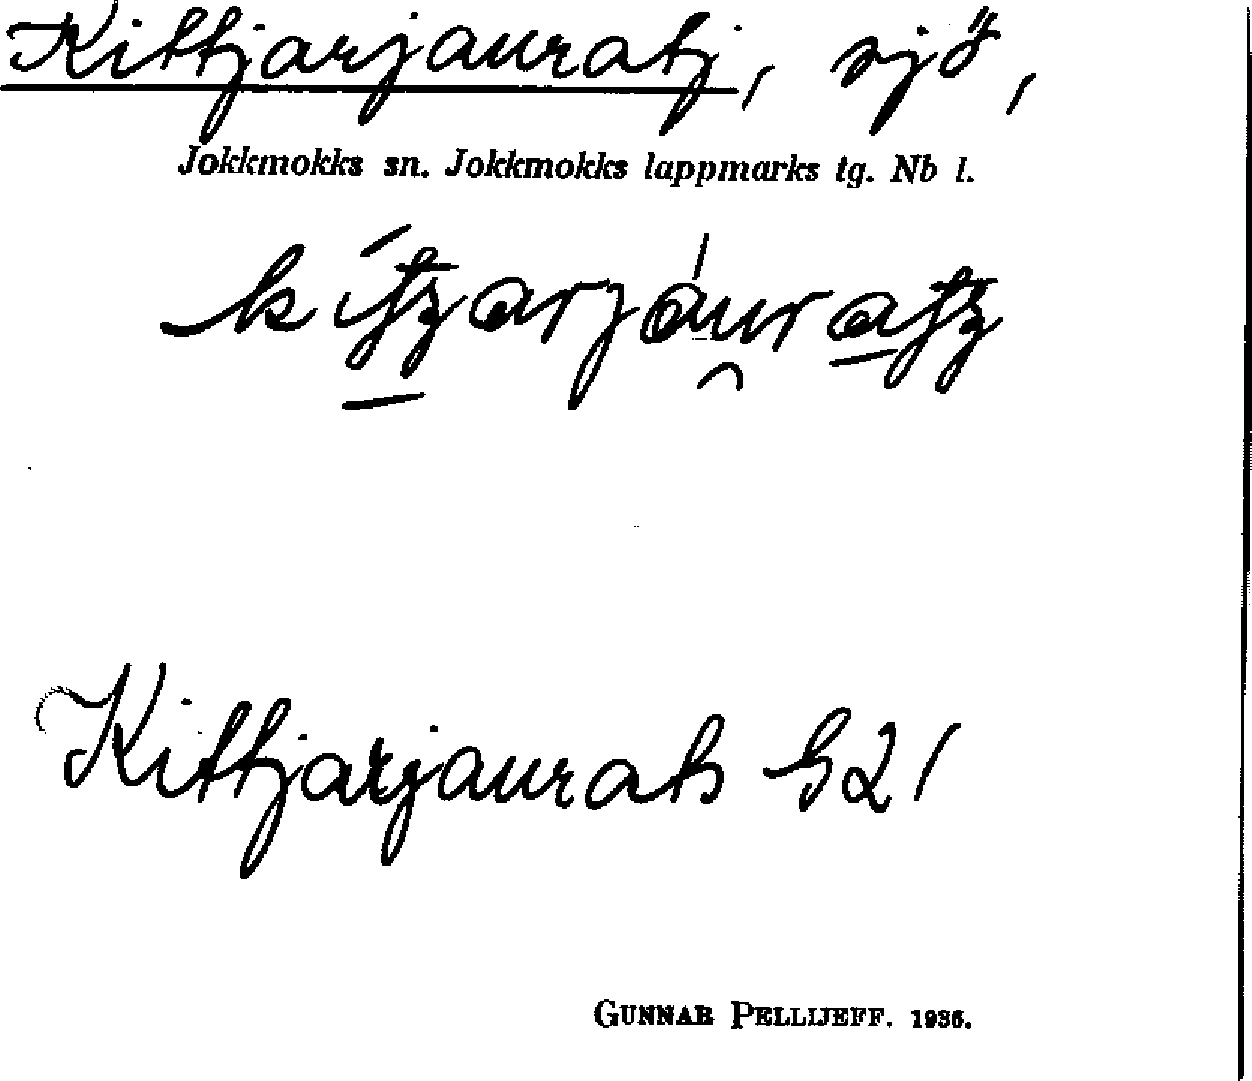 Kittjarjauratj, sjö,
Jokkmokks sn. Jokkmokks lappmarks tg. Nb l.
Kittjarjaurats
GUNNAR PELLIJEFF. 1936.